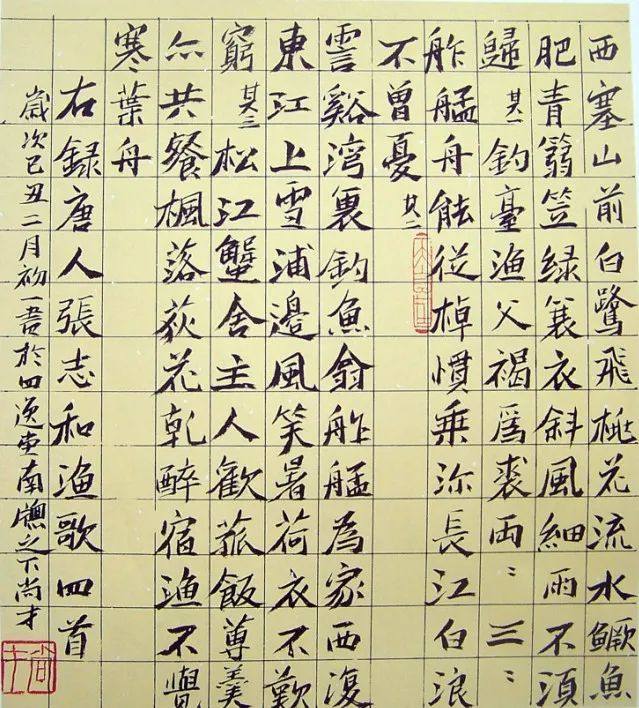 西塞山前白鷺飛桃花流水鱖魚
肥青篛笠緑蓑衣斜風細雨不須
歸其一釣臺漁父褐爲裘兩〻三〻
舴艋舟能從棹慣乘流長江白浪
不曾憂其二
霅谿湾裏釣魚翁舴艋為家西復
東江上雪浦邊風笑着荷衣不歎
窮其三松江蟹舍主人歡菰飯蓴羹
亦共餐楓落荻花乾醉宿漁不覺
寒葉舟
右録唐人張志和漁歌四首
歲次己丑二月初一書於四逸東南窗之下尚才